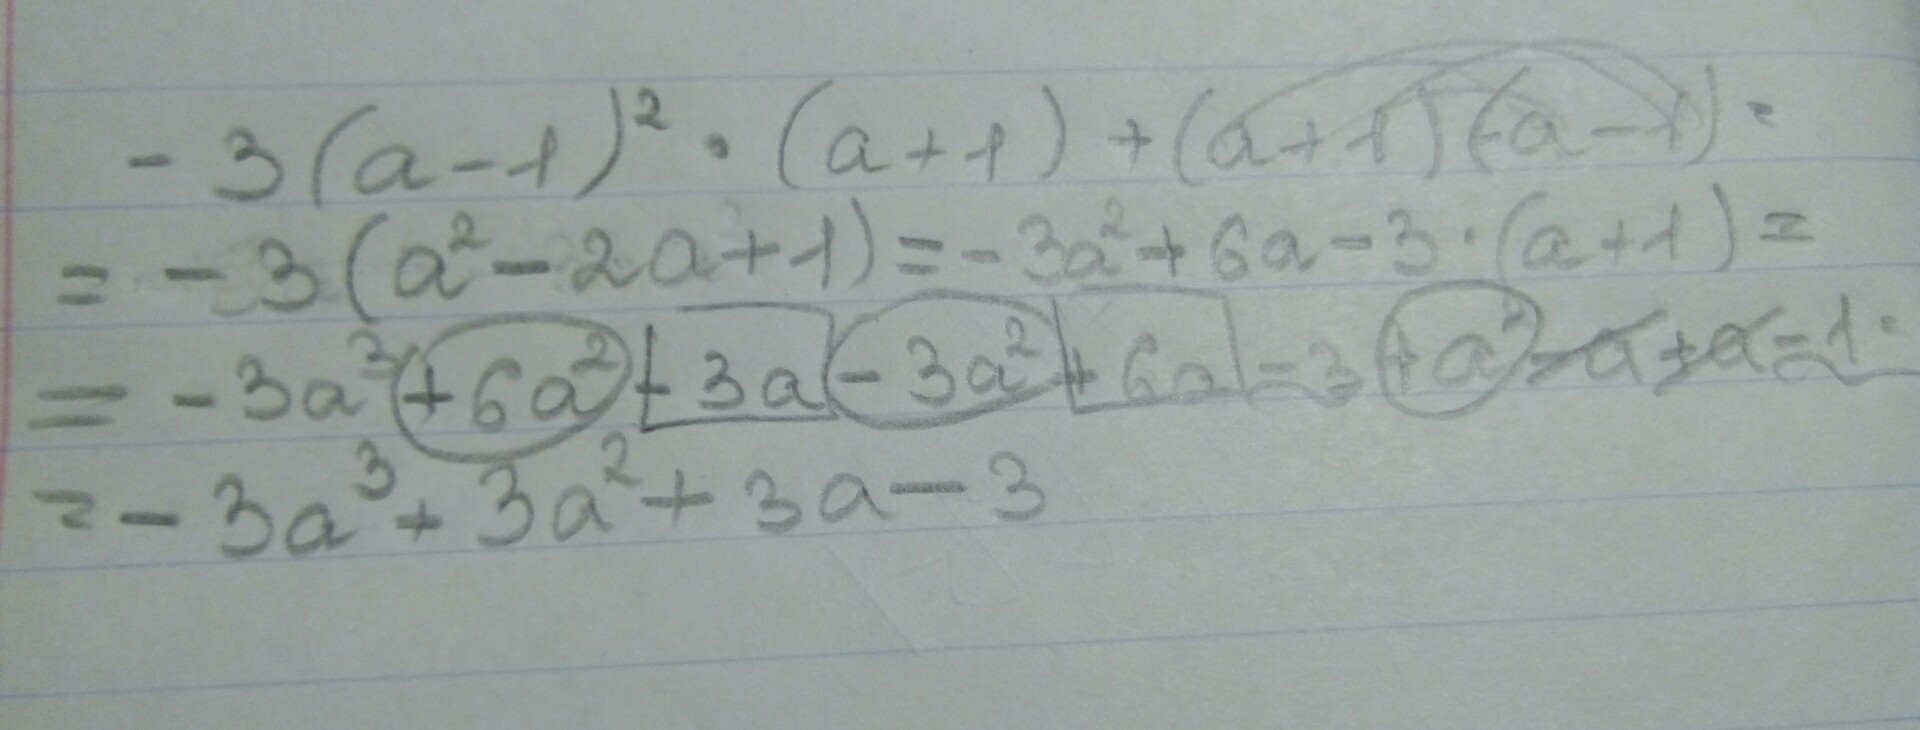 -3(a-1)²·(a+1)+(a+1)(-a-1)=
=-3(a²-2a+1)=-3a²+6a-3·(a+1)=
=-3a³+6a²-3a-3a²+6a-3+a²-a+a-1=
=-3a³+3a²+3a-3